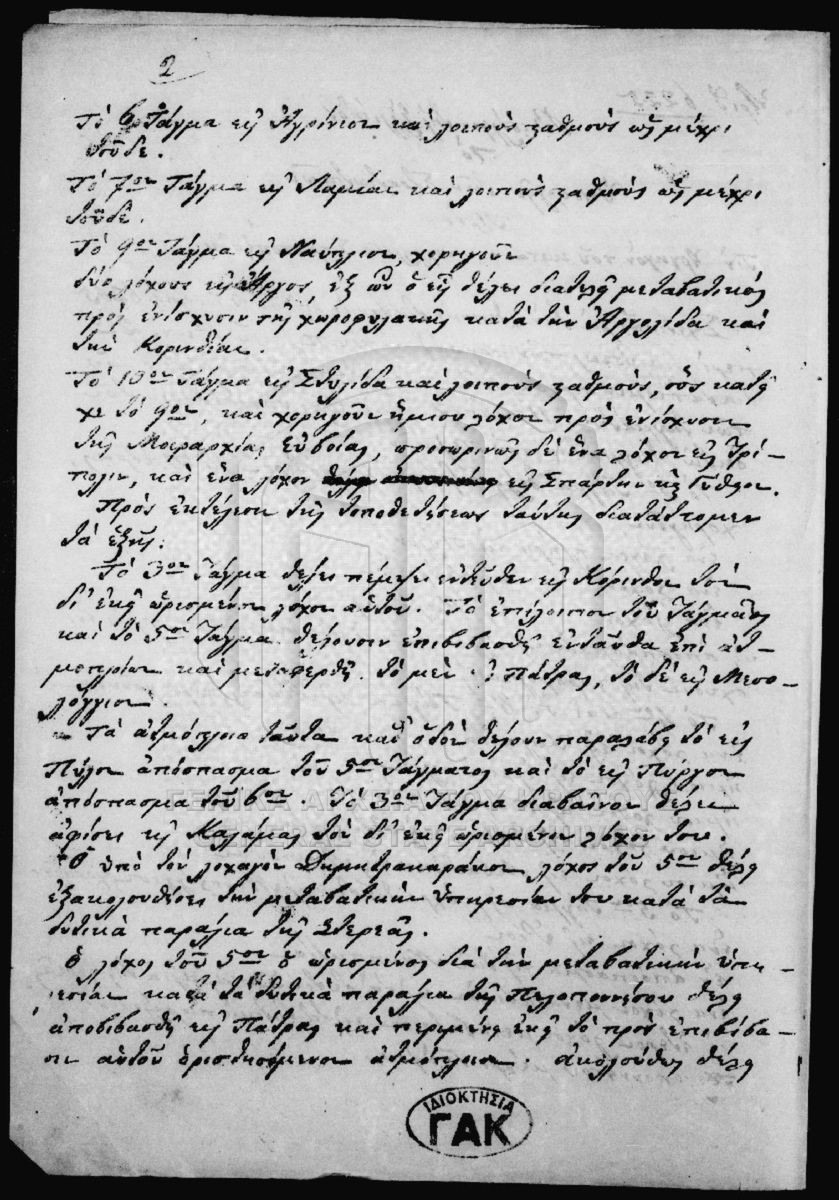 2
Τὸ 6ον Τάγμα εἰς Ἀγρίνιον καὶ λοιποὺς σταθμοὺς ὡς μέχρι
τοῦδε.
Τὸ 7ον Τάγμα εἰς Λαμίαν καὶ λοιποὺς σταθμοὺς ὡς μέχρι
τοῦδε.
Τὸ 9ον Τάγμα εἰς Ναύπλιον, χορηγοῦν
δύο λόχους εἰς Ἄργος, ἐξ ὧν ὁ εἷς θέλει διατελῇ μεταβατικὸς
πρὸς ἐνίσχυσιν τῆς χωροφυλακῆς κατὰ τὴν Ἀργολίδα καὶ
τὴν Κορινθίαν.
Τὸ 10ον Τάγμα εἰς Στυλίδα καὶ λοιποὺς σταθμοὺς, οὓς κατεῖ
χε τὸ 9ον, καὶ χορηγοῦν ἥμισυ λόχον πρὸς ἐνίσχυσιν
τῆς Μοιραρχίας Εὐβοίας, προσωρινῶς δὲ ἕνα λόχον εἰς Τρί-
πολιν, καὶ ἕνα λόχον εἰς Σπάρτην κ Γύθειον.
Πρὸς ἐκτέλεσιν τῆς τοποθετήσεως ταύτης διατάττομεν
τὰ ἑξῆς:
Τὸ 3ον Τάγμα θέλει πέμψει ἐντεῦθεν εἰς Κόρινθον τὸν
δι' ἐκεῖ ὡρισμένον λόχον αὐτοῦ. Τὸ ἐπίλοιπον τοῦ Τάγματος
καὶ τὸ 5ον Τάγμα θέλουσιν ἐπιβιβασθῇ ἐνταῦθα ἐπὶ ἀτ-
μοπλοίων καὶ μεταφερθῇ τὸ μὲν Πάτρας, τὸ δὲ εἰς Μεσο-
λόγγιον.
Τὰ ἀτμόπλοια ταῦτα καθ' ὁδὸν θέλουν παραλάβῃ τὸ εἰς
Πύλον ἀπόσπασμα τοῦ 5ου Τάγματος καὶ τὸ εἰς Πύργον
ἀπόσπασμα τοῦ 6ου. Τὸ 3ον Τάγμα διαβαῖνον θέλει
ἀφίσει εἰς Καλάμας τὸν δι' ἐκεῖ ὡρισμένον λόχον του.
Ὁ ὑπὸ τὸν λοχαγὸν Δημητρακαράκον λόχος τοῦ 5ου θέλει
ἐξακολουθήσει τὴν μεταβατικὴν ὑπηρεσίαν του κατὰ τὰ
δυτικὰ παράλια τῆς Στερεᾶς.
Ὁ λόχος τοῦ 5ου ὁ ὡρισμένος διὰ τὴν μεταβατικὴν ὑπη-
ρεσίαν κατὰ τὰ δυτικὰ παράλια τῆς Πελοποννήσου θέλει
ἀποβιβασθῇ εἰς Πάτρας καὶ περιμένῃ ἐκεῖ τὸ πρὸς ἐπιβίβα-
σιν αὐτοῦ ὁρισθησόμενον ἀτμόπλοιον. ἀκολούθως θέλει
ΙΔΙΟΚΤΗΣΙΑ
ΓΑΚ